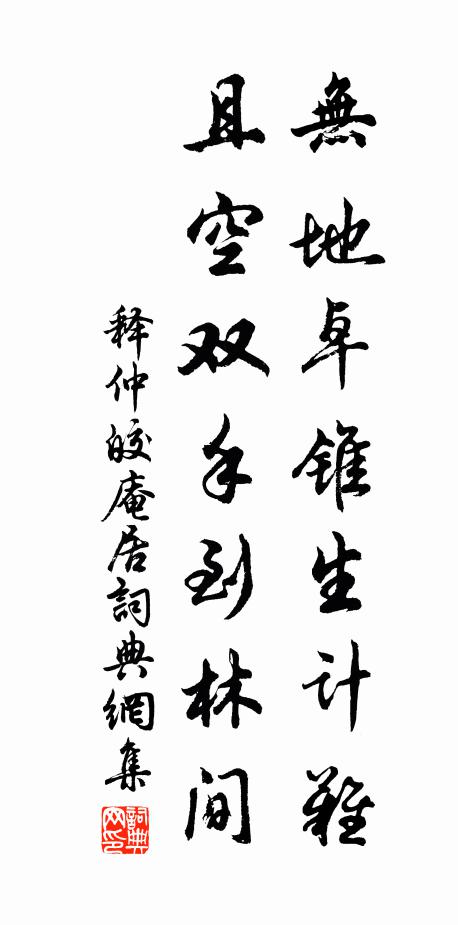 無地卓錐生計難
且空双手到林間
释仲皎庵居詞典網集
詞典
网印